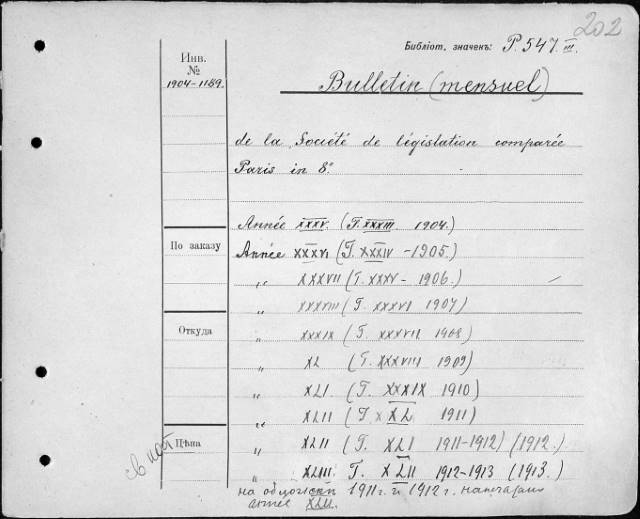 202
Библіот. значекъ: P. 547. III.
Инв.
№
1904-1189.
Bulletin (mensuel)
de la Société de législation comparée
Paris in 8°
Année XXXV. (T. XXXIII. 1904.)
По заказу
Année XXXVI (T. XXXIV - 1905.)
„ XXXVII (T. XXXV - 1906.)
„ XXXVIII (T. XXXVI 1907)
Откуда
„ XXXIX (T. XXXVII 1908)
„ XL (T. XXXVIII 1909)
„ XLI (T. XXXIX 1910)
„ XLII (T. XL 1911)
Цѣна
„ XLII (T. XLI 1911-1912) (1912.)
„ XLIII T. XLII 1912-1913 (1913.)
на 1911 г. и 1912 г.
année XLII.